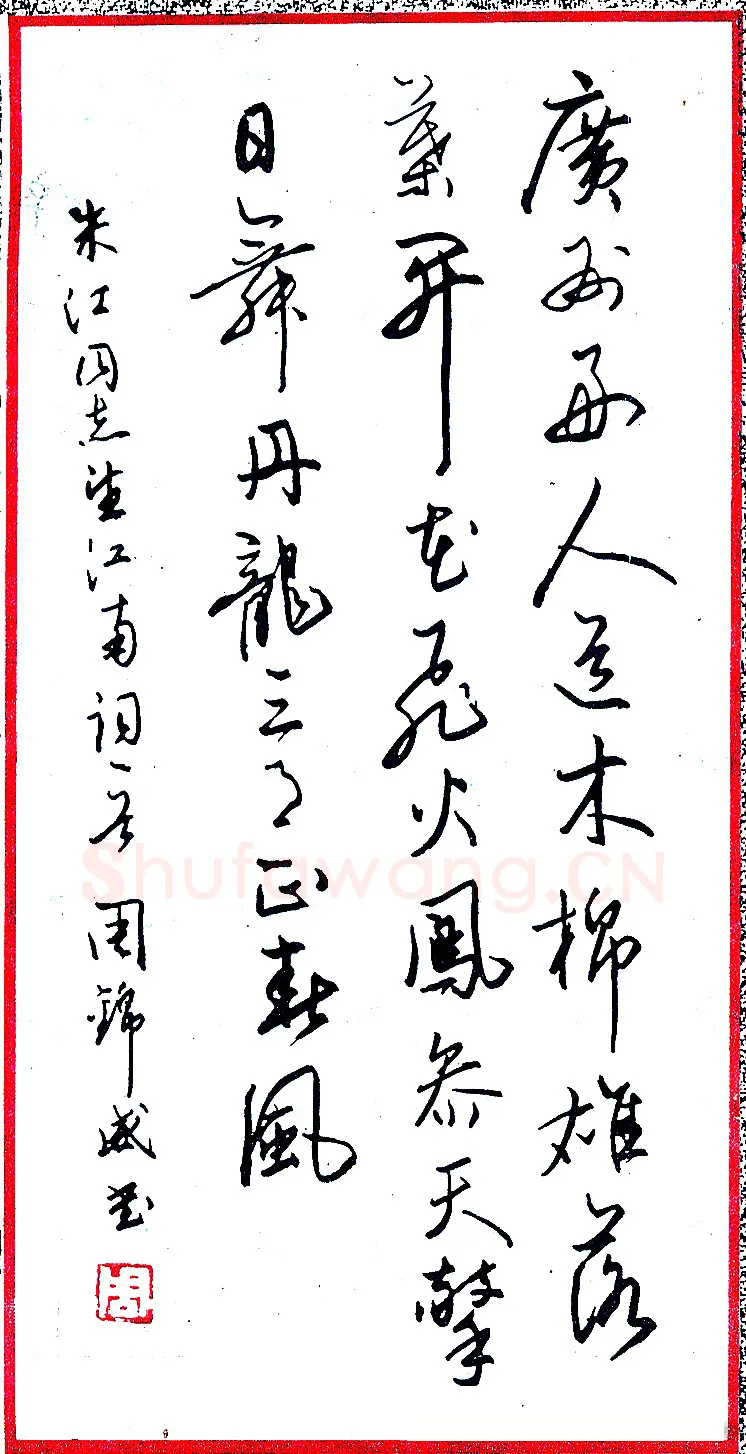 廣州好人道木棉雄落
葉開花飛火鳳參天擎
日舞丹龍三月正春風
朱江同志望江南詞一首 周錦威書
周
Shufawang.CN